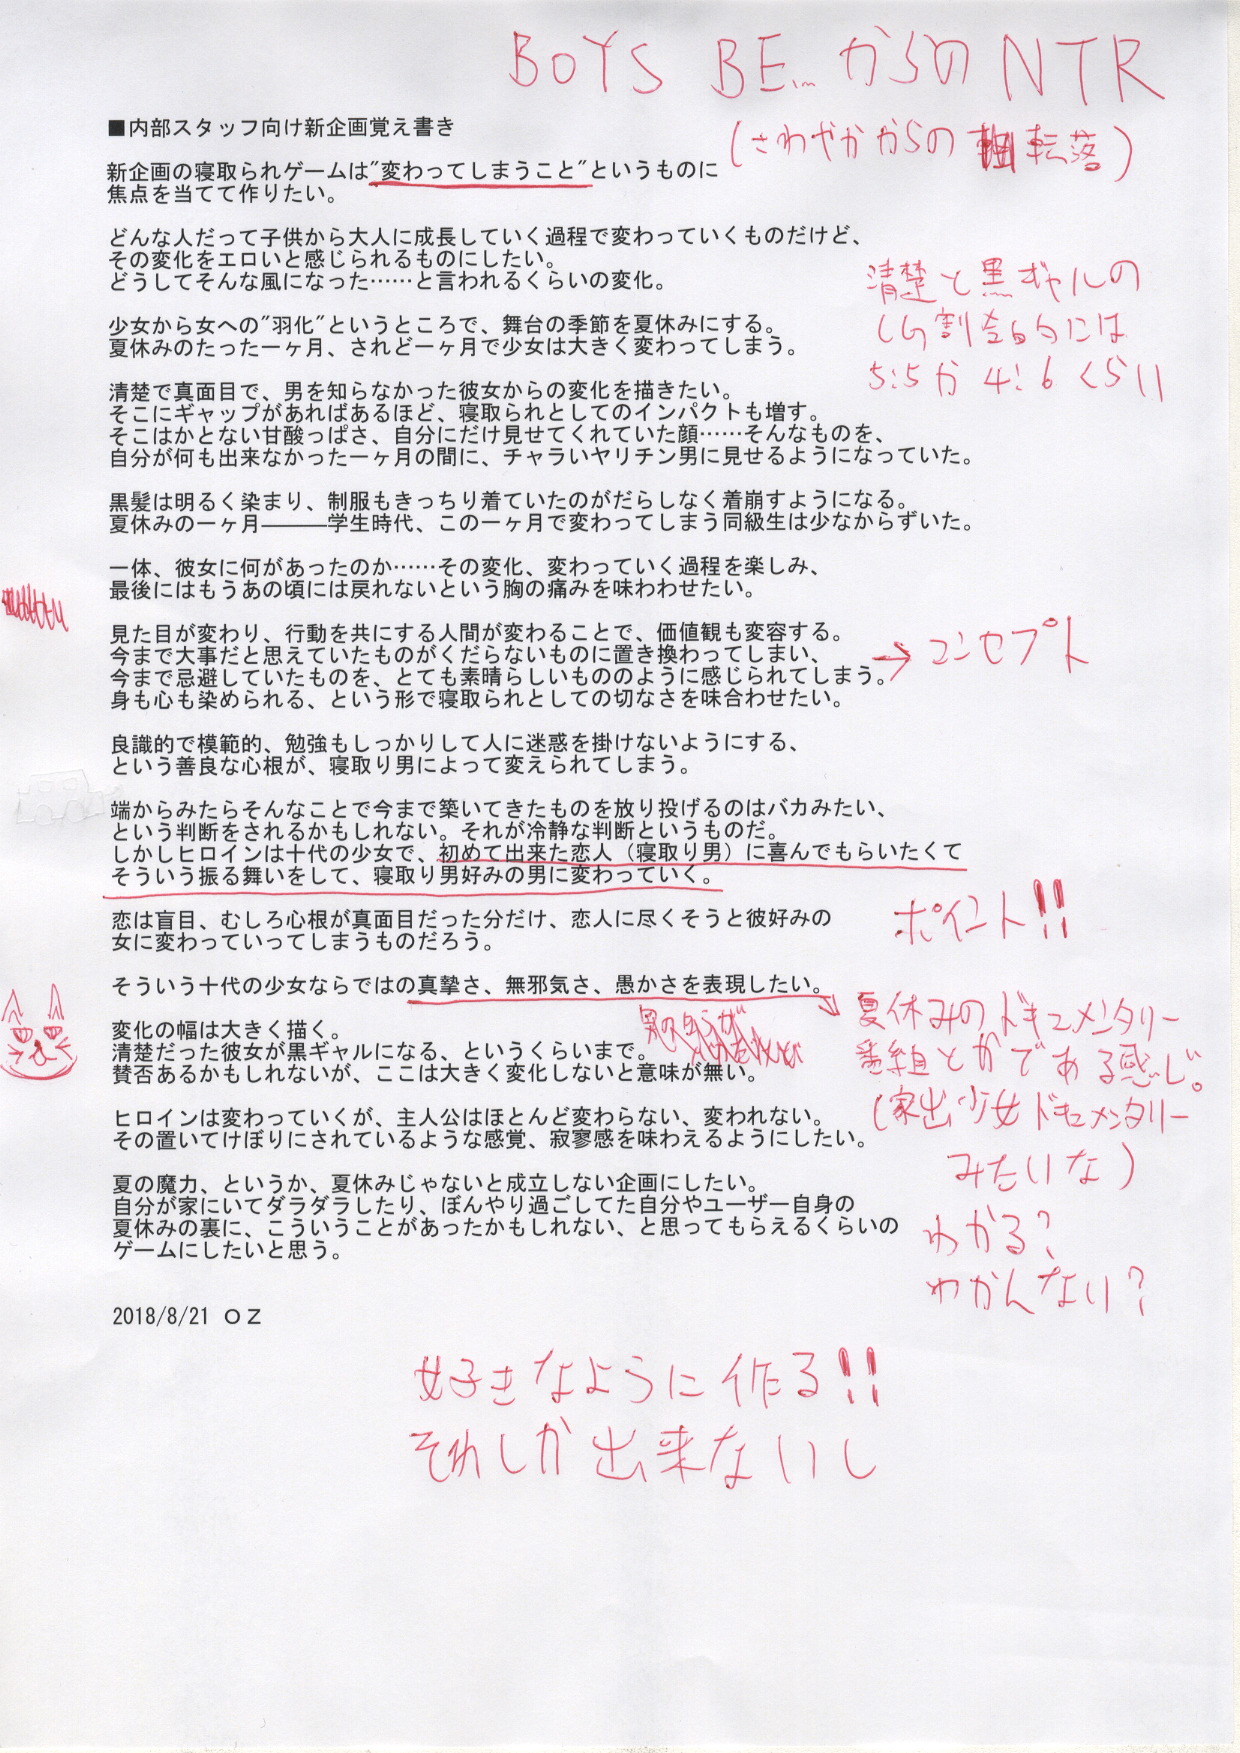 BOYS BE… からのNTR
(さわやかからの転落)
■内部スタッフ向け新企画覚え書き
新企画の寝取られゲームは"変わってしまうこと"というものに
焦点を当てて作りたい。
どんな人だって子供から大人に成長していく過程で変わっていくものだけど、
その変化をエロいと感じられるものにしたい。
どうしてそんな風になった……と言われるくらいの変化。
清楚と黒ギャルの
CG割合的には
5:5か4:6くらい
少女から女への"羽化"というところで、舞台の季節を夏休みにする。
夏休みのたった一ヶ月、されど一ヶ月で少女は大きく変わってしまう。
清楚で真面目で、男を知らなかった彼女からの変化を描きたい。
そこにギャップがあればあるほど、寝取られとしてのインパクトも増す。
そこはかとない甘酸っぱさ、自分にだけ見せてくれていた顔……そんなものを、
自分が何も出来なかった一ヶ月の間に、チャラいヤリチン男に見せるようになっていた。
黒髪は明るく染まり、制服もきっちり着ていたのがだらしなく着崩すようになる。
夏休みの一ヶ月―――学生時代、この一ヶ月で変わってしまう同級生は少なからずいた。
一体、彼女に何があったのか……その変化、変わっていく過程を楽しみ、
最後にはもうあの頃には戻れないという胸の痛みを味わわせたい。
見た目が変わり、行動を共にする人間が変わることで、価値観も変容する。
今まで大事だと思えていたものがくだらないものに置き換わってしまい、
今まで忌避していたものを、とても素晴らしいもののように感じられてしまう。
身も心も染められる、という形で寝取られとしての切なさを味合わせたい。
→コンセプト
良識的で模範的、勉強もしっかりして人に迷惑を掛けないようにする、
という善良な心根が、寝取り男によって変えられてしまう。
端からみたらそんなことで今まで築いてきたものを放り投げるのはバカみたい、
という判断をされるかもしれない。それが冷静な判断というものだ。
しかしヒロインは十代の少女で、初めて出来た恋人（寝取り男）に喜んでもらいたくて
そういう振る舞いをして、寝取り男好みの男に変わっていく。
ポイント!!
恋は盲目、むしろ心根が真面目だった分だけ、恋人に尽くそうと彼好みの
女に変わっていってしまうものだろう。
そういう十代の少女ならではの真摯さ、無邪気さ、愚かさを表現したい。
夏休みのドキュメンタリー
番組とかである感じ。
(家出少女ドキュメンタリー
みたいな)
わかる?
わかんない?
変化の幅は大きく描く。
清楚だった彼女が黒ギャルになる、というくらいまで。
賛否あるかもしれないが、ここは大きく変化しないと意味が無い。
ヒロインは変わっていくが、主人公はほとんど変わらない、変われない。
その置いてけぼりにされているような感覚、寂寥感を味わえるようにしたい。
夏の魔力、というか、夏休みじゃないと成立しない企画にしたい。
自分が家にいてダラダラしたり、ぼんやり過ごしてた自分やユーザー自身の
夏休みの裏に、こういうことがあったかもしれない、と思ってもらえるくらいの
ゲームにしたいと思う。
2018/8/21 ＯＺ
好きなように作る!!
それしか出来ないし